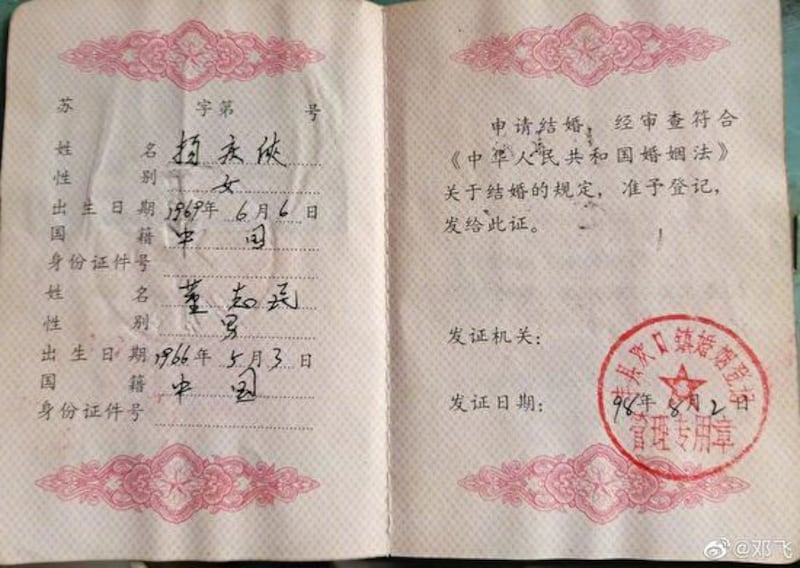 苏 字第 号
姓 名 杨庆侠
性 别 女
出生日期 1969年 6月 6日
国 籍 中 国
身份证件号
姓 名 董志民
性 别 男
出生日期 1966年 5月 3日
国 籍 中 国
身份证件号
申请结婚，经审查符合
《中华人民共和国婚姻法》
关于结婚的规定，准予登记，
发给此证。
发证机关：
发证日期： 98年 8月 2日
丰县欢口镇婚姻登记
管理专用章
@邓飞